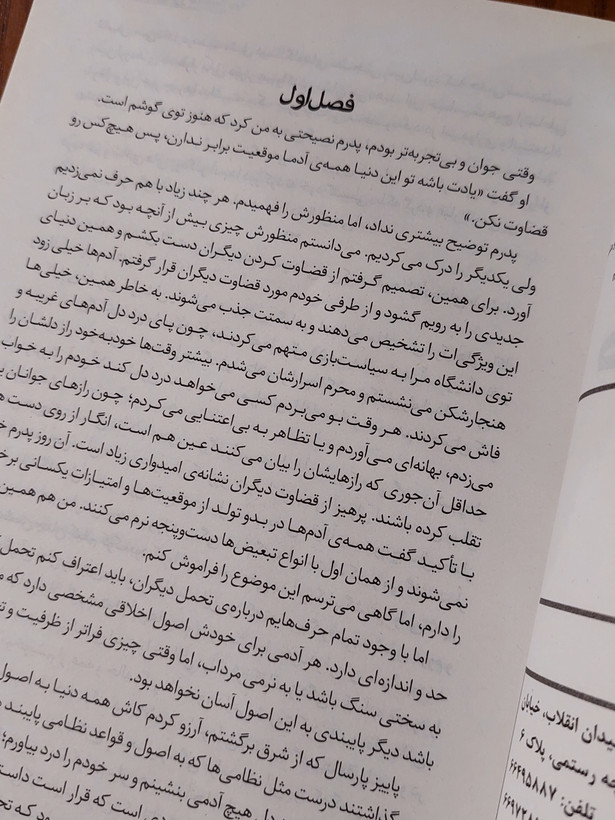 فصل اول
وقتی جوان و بی‌تجربه‌تر بودم، پدرم نصیحتی به من کرد که هنوز توی گوشم است.
او گفت «یادت باشه تو این دنیا همه‌ی آدما موقعیت برابر ندارن، پس هیچ‌کس رو
قضاوت نکن.»
پدرم توضیح بیشتری نداد، اما منظورش را فهمیدم. هر چند زیاد با هم حرف نمی‌زدیم
ولی یکدیگر را درک می‌کردیم. می‌دانستم منظورش چیزی بیش از آنچه بود که بر زبان
آورد. برای همین، تصمیم گرفتم از قضاوت کردن دیگران دست بکشم و همین دنیای
جدیدی را به رویم گشود و از طرفی خودم مورد قضاوت دیگران قرار گرفتم. آدم‌ها خیلی زود
این ویژگی‌ات را تشخیص می‌دهند و به سمتت جذب می‌شوند. به خاطر همین، خیلی‌ها
توی دانشگاه مرا به سیاست‌بازی متهم می‌کردند، چون پای درد دل آدم‌های غریبه و
هنجارشکن می‌نشستم و محرم اسرارشان می‌شدم. بیشتر وقت‌ها خودبه‌خود راز دلشان را
فاش می‌کردند. هر وقت بو می‌بردم کسی می‌خواهد درد دل کند خودم را به خواب
می‌زدم، بهانه‌ای می‌آوردم و یا تظاهر به بی‌اعتنایی می‌کردم؛ چون رازهای جوانان
حداقل آن‌جوری که رازهایشان را بیان می‌کنند عین هم است، انگار از روی دست
تقلب کرده باشند. پرهیز از قضاوت دیگران نشانه‌ی امیدواری زیاد است. آن روز پدرم
با تأکید گفت همه‌ی آدم‌ها در بدو تولد از موقعیت‌ها و امتیازات یکسانی
نمی‌شوند و از همان اول با انواع تبعیض‌ها دست‌وپنجه نرم می‌کنند. من هم همین
را دارم، اما گاهی می‌ترسم این موضوع را فراموش کنم.
اما با وجود تمام حرف‌هایم درباره‌ی تحمل دیگران، باید اعتراف کنم تحمل
حد و اندازه‌ای دارد. هر آدمی برای خودش اصول اخلاقی مشخصی دارد که
به سختی سنگ باشد یا به نرمی مرداب، اما وقتی چیزی فراتر از ظرفیت و
باشد دیگر پایبندی به این اصول آسان نخواهد بود.
پاییز پارسال که از شرق برگشتم، آرزو کردم کاش همه دنیا به اصول
گذاشتند درست مثل نظامی‌ها که به اصول و قواعد نظامی پایبند
دل هیچ آدمی بنشینم و سر خودم را درد بیاورم؛
است که قرار است
میدان انقلاب، خیابان
رستمی، پلاک ۶
تلفن: ۶۶۴۹۵۸۸۷